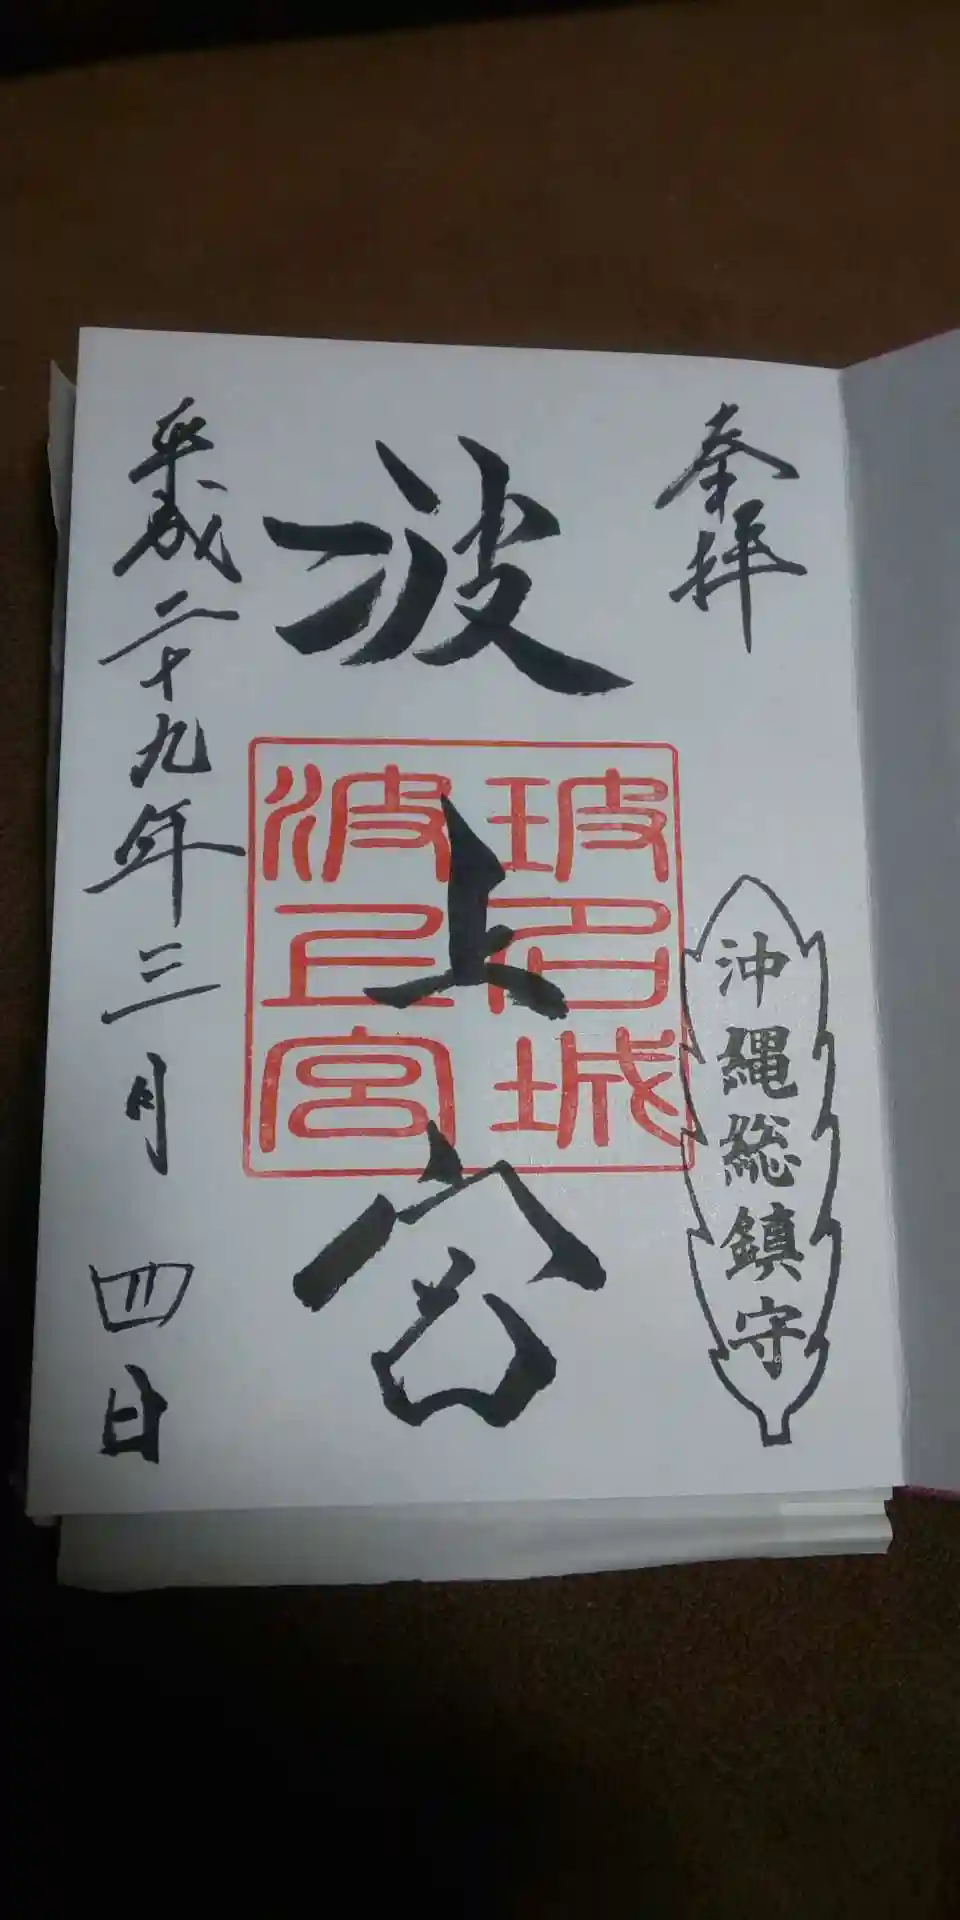 奉拝
沖縄総鎮守
波上宮
玻名城
波上宮
平成二十九年三月四日